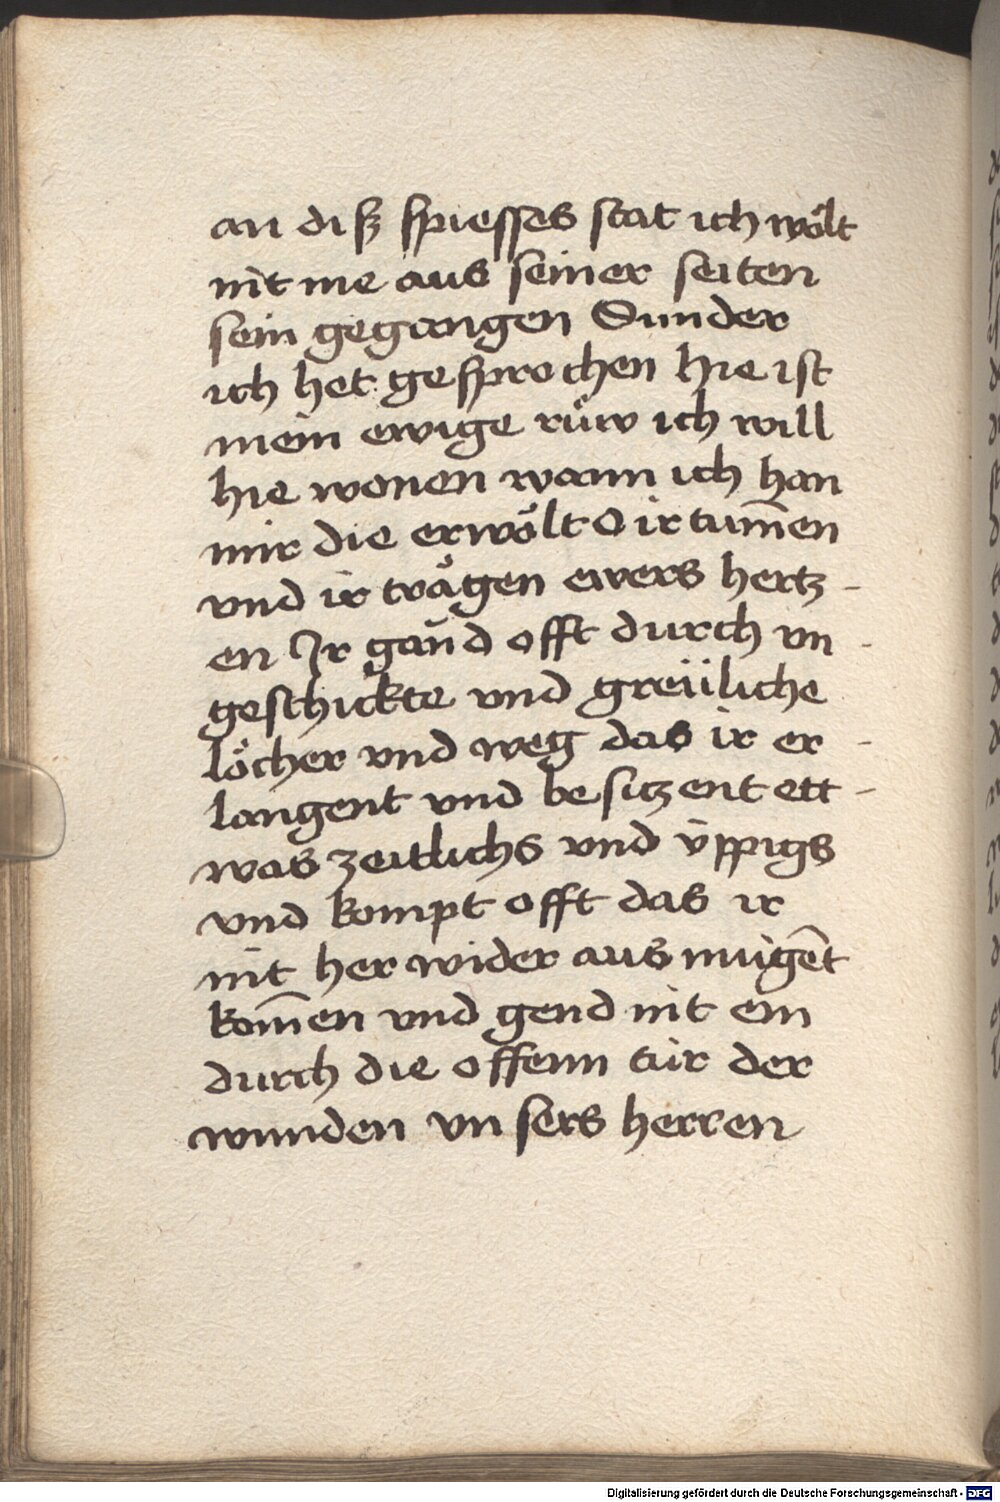 an diß spiesses stat ich wölt
nit me aus seiner seiten
sein gegangen Sunder
ich het gesprochen hie ist
mein ewige rüw ich will
hie wonen wann ich han
mir die erwölt O ir tum̄en
vnd ir trägen ewers hertz-
en Ir gānd offt durch vn-
geschickte vnd greüliche
löcher vnd weg das ir er-
langent vnd besitzent ett-
was zeitlichs vnd v̈ppigs
vnd kompt offt das ir
nit her wider aus mügēt
kom̄en vnd gend nit ein
durch die offenn tür der
wunden vnsers herren
Digitalisierung gefördert durch die Deutsche Forschungsgemeinschaft - DFG